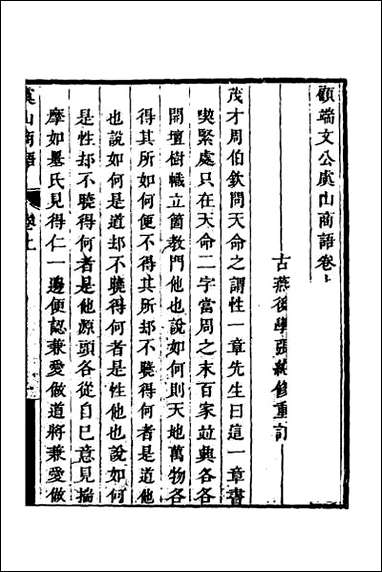 顧端文公虞山商語卷上
古燕後學張純修重訂
茂才周伯欽問天命之謂性一章先生曰這一章書
喫緊處只在天命二字當周之末百家並興各各
開壇樹幟立箇教門他也說如何則天地萬物各
得其所如何便不得其所却不曉得何者是道他
也說如何是道却不曉得何者是性他也說如何
是性却不曉得何者是他源頭各從自已意見揣
摩如墨氏見得仁一邊便認兼愛做道將兼愛做
虞山商語 卷上 一